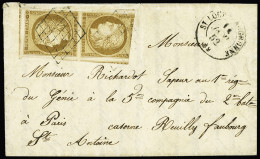 Monsieur
Monsieur Richardot Sapeur au 1er rég
du Génie à la 5e compagnie du 2e bat
à Paris caserne Reuilly faubourg
St Antoine